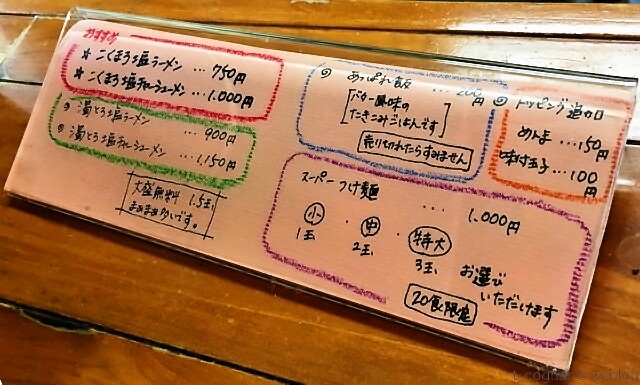 おすすめ
☆ こくまろ塩ラーメン … 750円
☆ こくまろ塩チャーシューメン … 1.000円
◎ 湯とろ塩ラーメン … 900円
◎ 湯とろ塩チャーシューメン … 1,150円
大盛無料 1.5玉
まあまあ多いです。
◎ あっぱれ飯 … 200円
バター風味の
たきこみごはんです
売り切れたらすみません
トッピング追加
めんま … 150円
味付玉子 … 100円
スーパーつけ麺 … 1.000円
小 ・ 中 ・ 特大
1玉 2玉 3玉
お選び
いただけます
20食限定